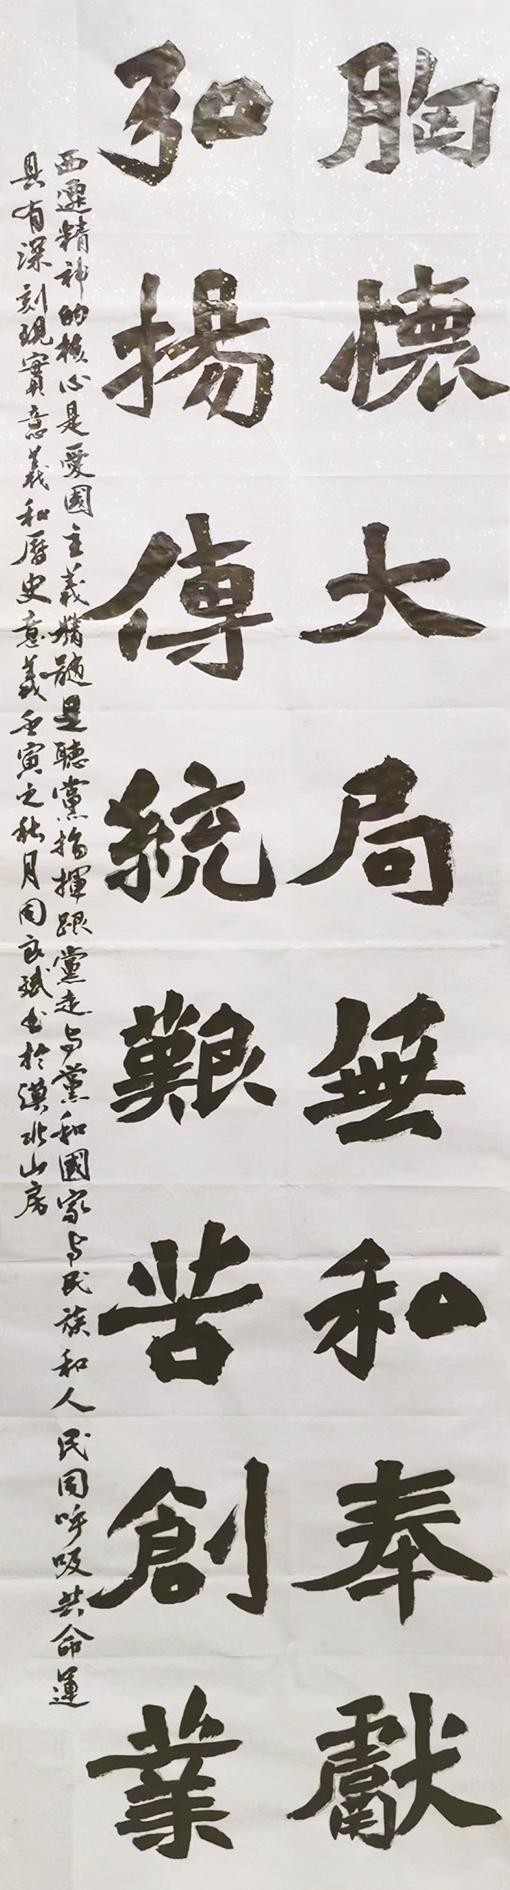 胸懷大局無私奉獻
弘揚傳統艱苦創業
西遷精神的核心是愛國主義精髓是聽黨指揮跟黨走与黨和國家与民族和人民同呼吸共命運
具有深刻現實意義和歷史意義壬寅之秋月周良斌书於漢山房